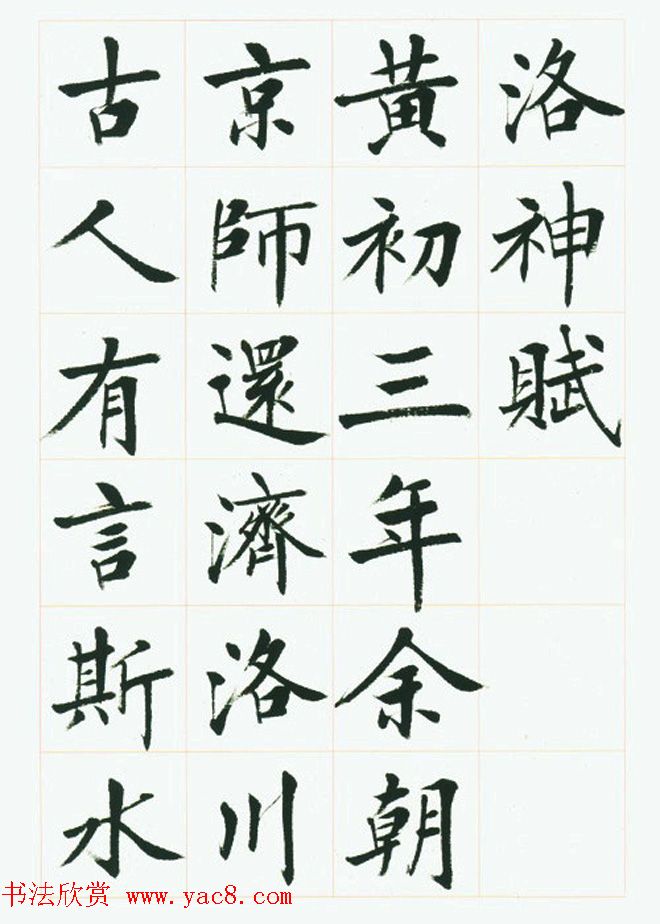 洛神賦
黃初三年余朝
京師還濟洛川
古人有言斯水
书法欣赏 www.yac8.com